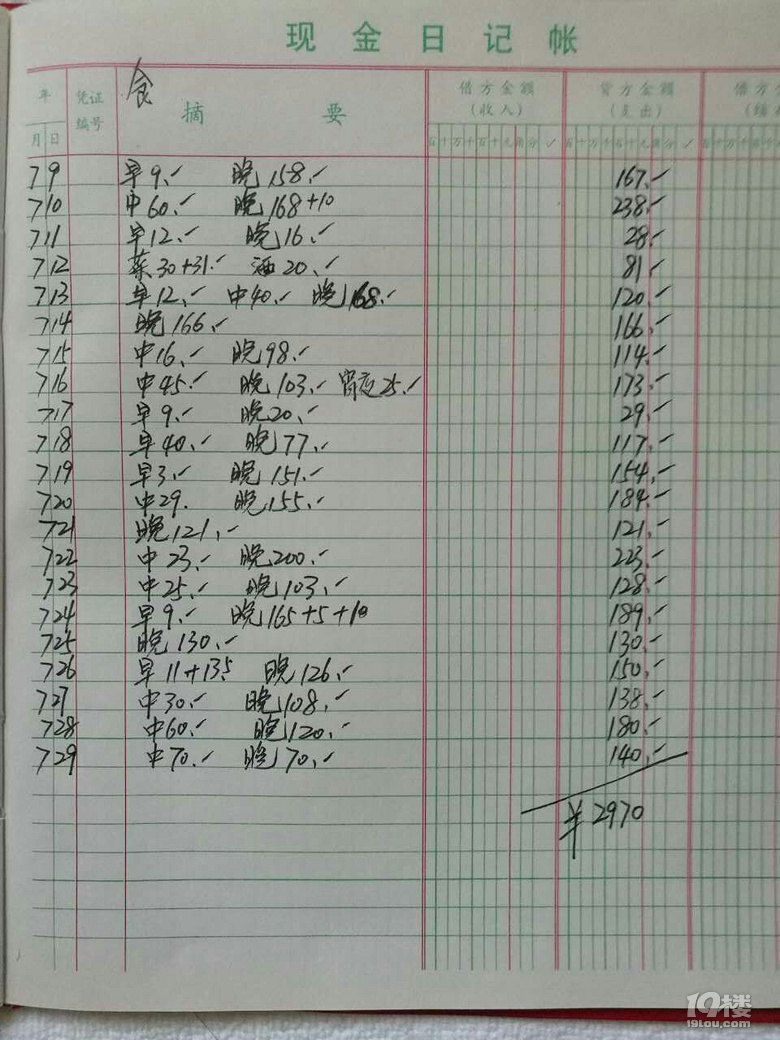 现金日记帐
年 凭证 食 借方金额 贷方金额 借方
编号 摘要 (收入) (支出)
月 日 百十万千百十元角分✓ 百十万千百十元角分✓
7 9 早9.- 晚158.- 167.-
7 10 中60.- 晚168+10 238.-
7 11 早12.- 晚16.- 28.-
7 12 菜30+31.- 酒20.- 81.-
7 13 早12.- 中40.- 晚168.- 120.-
7 14 晚166.- 166.-
7 15 中16.- 晚98.- 114.-
7 16 中45.- 晚103.- 宵夜25.- 173.-
7 17 早9.- 晚20.- 29.-
7 18 早40.- 晚77.- 117.-
7 19 早3.- 晚151.- 154.-
7 20 中29. 晚155.- 184.-
7 21 晚121.- 121.-
7 22 中23.- 晚200.- 223.-
7 23 中25.- 晚103.- 128.-
7 24 早9.- 晚165+5+10 189.-
7 25 晚130.- 130.-
7 26 早11+13.5 晚126.- 150.-
7 27 中30.- 晚108.- 138.-
7 28 中60.- 晚120.- 180.-
7 29 中70.- 晚70.- 140.-
¥2970
19楼
19lou.com